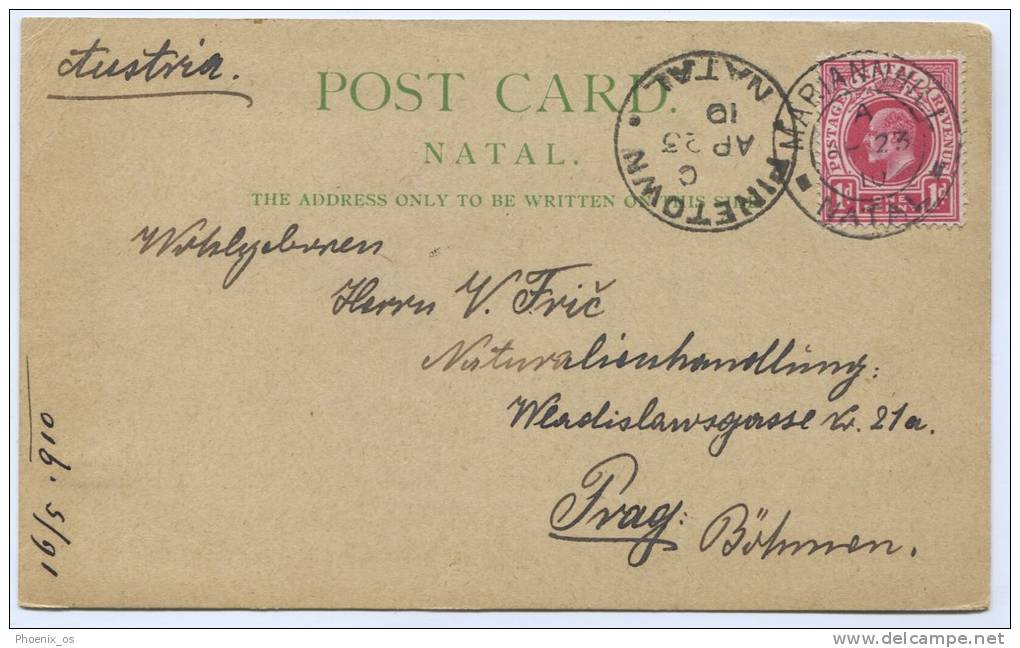 Austria.
POST CARD.
NATAL.
THE ADDRESS ONLY TO BE WRITTEN ON THIS SIDE
PINETOWN NATAL
C
AP 23
10
MARIANNHILL
A
23
10
NATAL
POSTAGE REVENUE
1d 1d
Wohlgeboren
Herrn V. Frič
Naturalienhandlung:
Wladislawsgasse 21a.
Prag: Böhmen.
16/5 . 910
Phoenix_os
delcampe.net